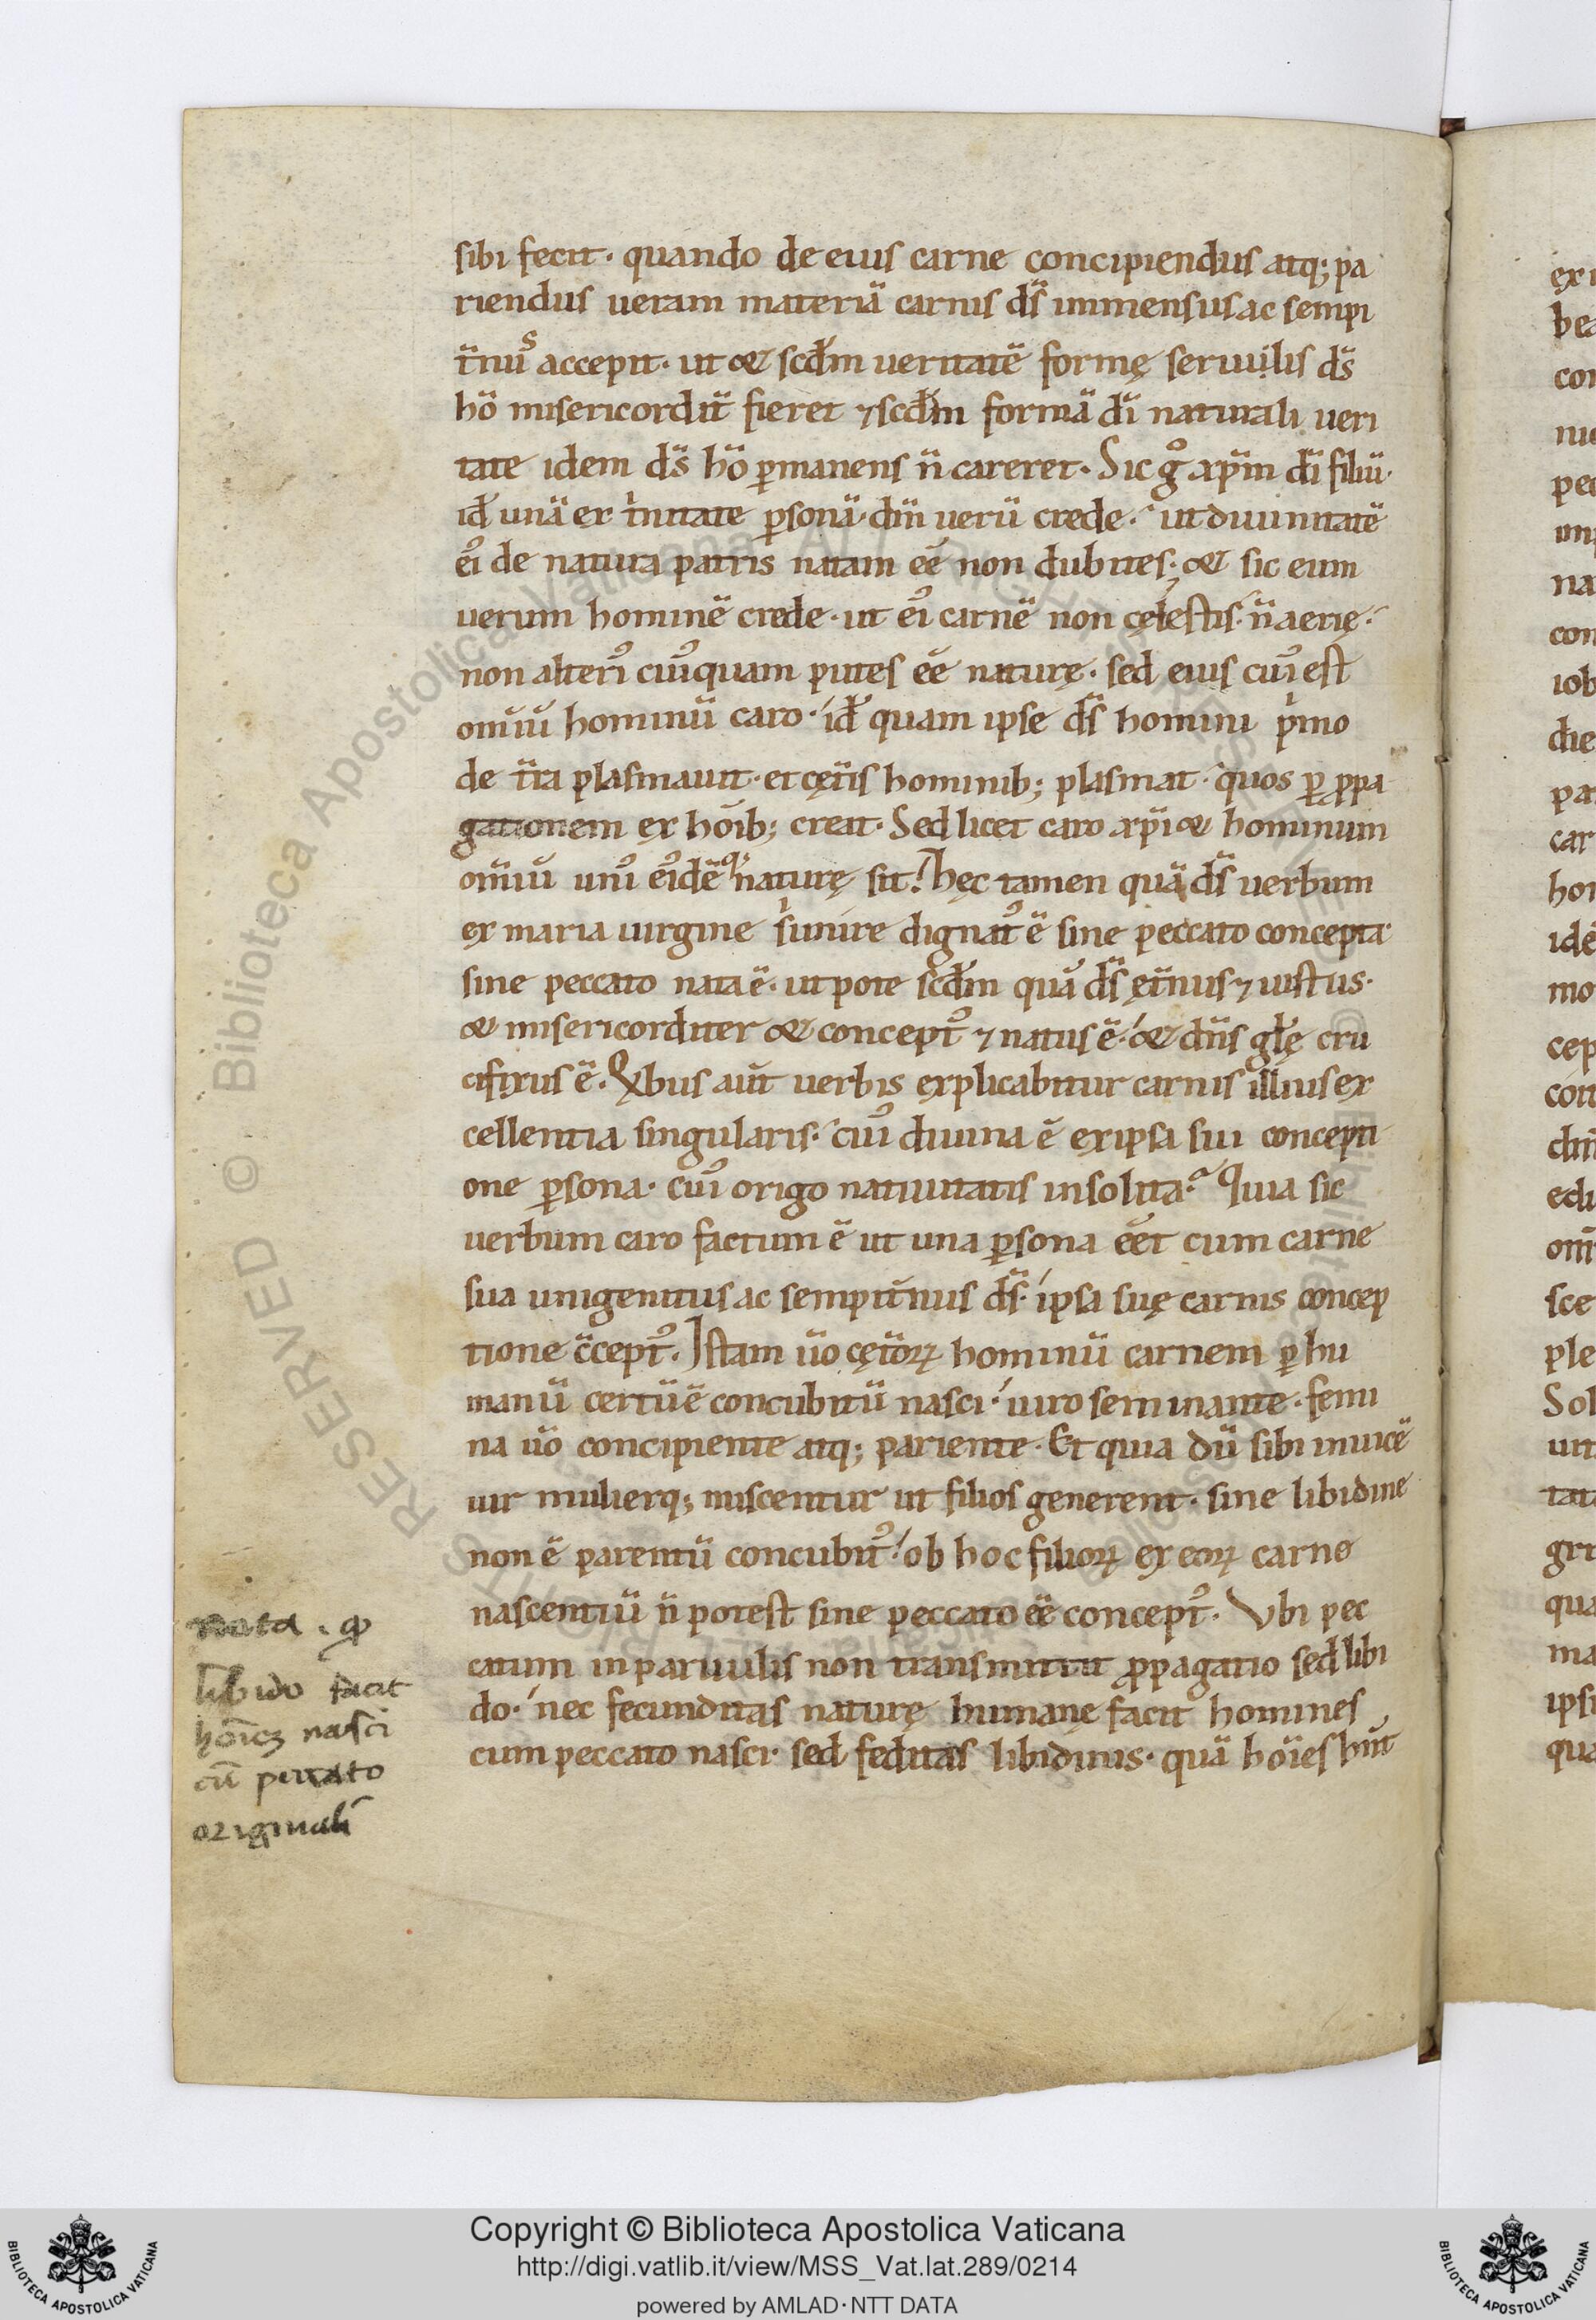 sibi fecit. quando de eius carne concipiendus atq; pa
riendus ueram materiā carnis ds̄ immensus ac sempi
t̄nus accepit. ut & scdm̄ ueritatē formę seruilis ds̄
hō misericordit̄ fieret ⁊ scdm̄ formā dī naturali ueri
tate idem ds̄ hō p̄manens n̄ careret. Sic gͦ xp̄m dī filiū.
id̄ unā ex t̄nitate p̄sonā. dm̄ uerū crede. ut diuinitatē
ei᾿ de natura patris natam eē non dubites. & sic eum
uerum hominē crede. ut ei᾿ carnē non cęlestis. n̄ aerię.
non alteri᾿ cui᾿quam putes eē naturę. sed eius cui᾿ est
om̄iū hominū caro. id̄ quam ipse ds̄ homini p̍mo
de t̄ra plasmauit. et cęt̄is hominib; plasmat. quos ꝑ ꝓpa
gationem ex hoīb; creat. Sed licet caro xp̄i & hominum
om̄iū uni᾿ ei᾿dē q; naturę sit. hęc tamen quā ds̄ uerbum
ex maria uirgine s̍ unire dignat᾿ ē sine peccato concepta
sine peccato nata ē. ut pote scdm̄ quā ds̄ ęt̄nus ⁊ iustus.
& misericorditer & concept᾿ ⁊ natus ē. & dn̄s glę̄ cru
cifixus ē. Qͥbus aut̄ uerbis explicabitur carnis illius ex
cellentia singularis. cui᾿ diuina ē ex ipsa sui concepti
one p̄sona. cui᾿ origo natiuitatis insolita. Quia sic
uerbum caro factum ē ut una p̄sona eēt cum carne
sua unigenitus ac sempit̄nus ds̄. ipsa suę carnis concep
tione c̄cept᾿. Istam ūo cęt̄oꝝ hominū carnem ꝑ hu
manū certū ē concubitū nasci. uiro seminante. femi
na ūo concipiente atq; pariente. Et quia dū sibi inuicē
uir mulierq; miscentur ut filios generent. sine libidine
non ē parentū concubit᾿. ob hoc filioꝝ ex eoꝝ carne
nascentiū n̄ potest sine peccato eē concept᾿. Vbi pec
catum in paruulis non transmittit ꝓpagatio sed libi
do. nec fecunditas naturę humanę facit homines
cum peccato nasci. sed feditas libidinis. quā hoīes hn̄t
Nota. ꝙ
libido facit
hoīes nasci
cū peccato
originali
Copyright © Biblioteca Apostolica Vaticana
http://digi.vatlib.it/view/MSS_Vat.lat.289/0214
powered by AMLAD·NTT DATA